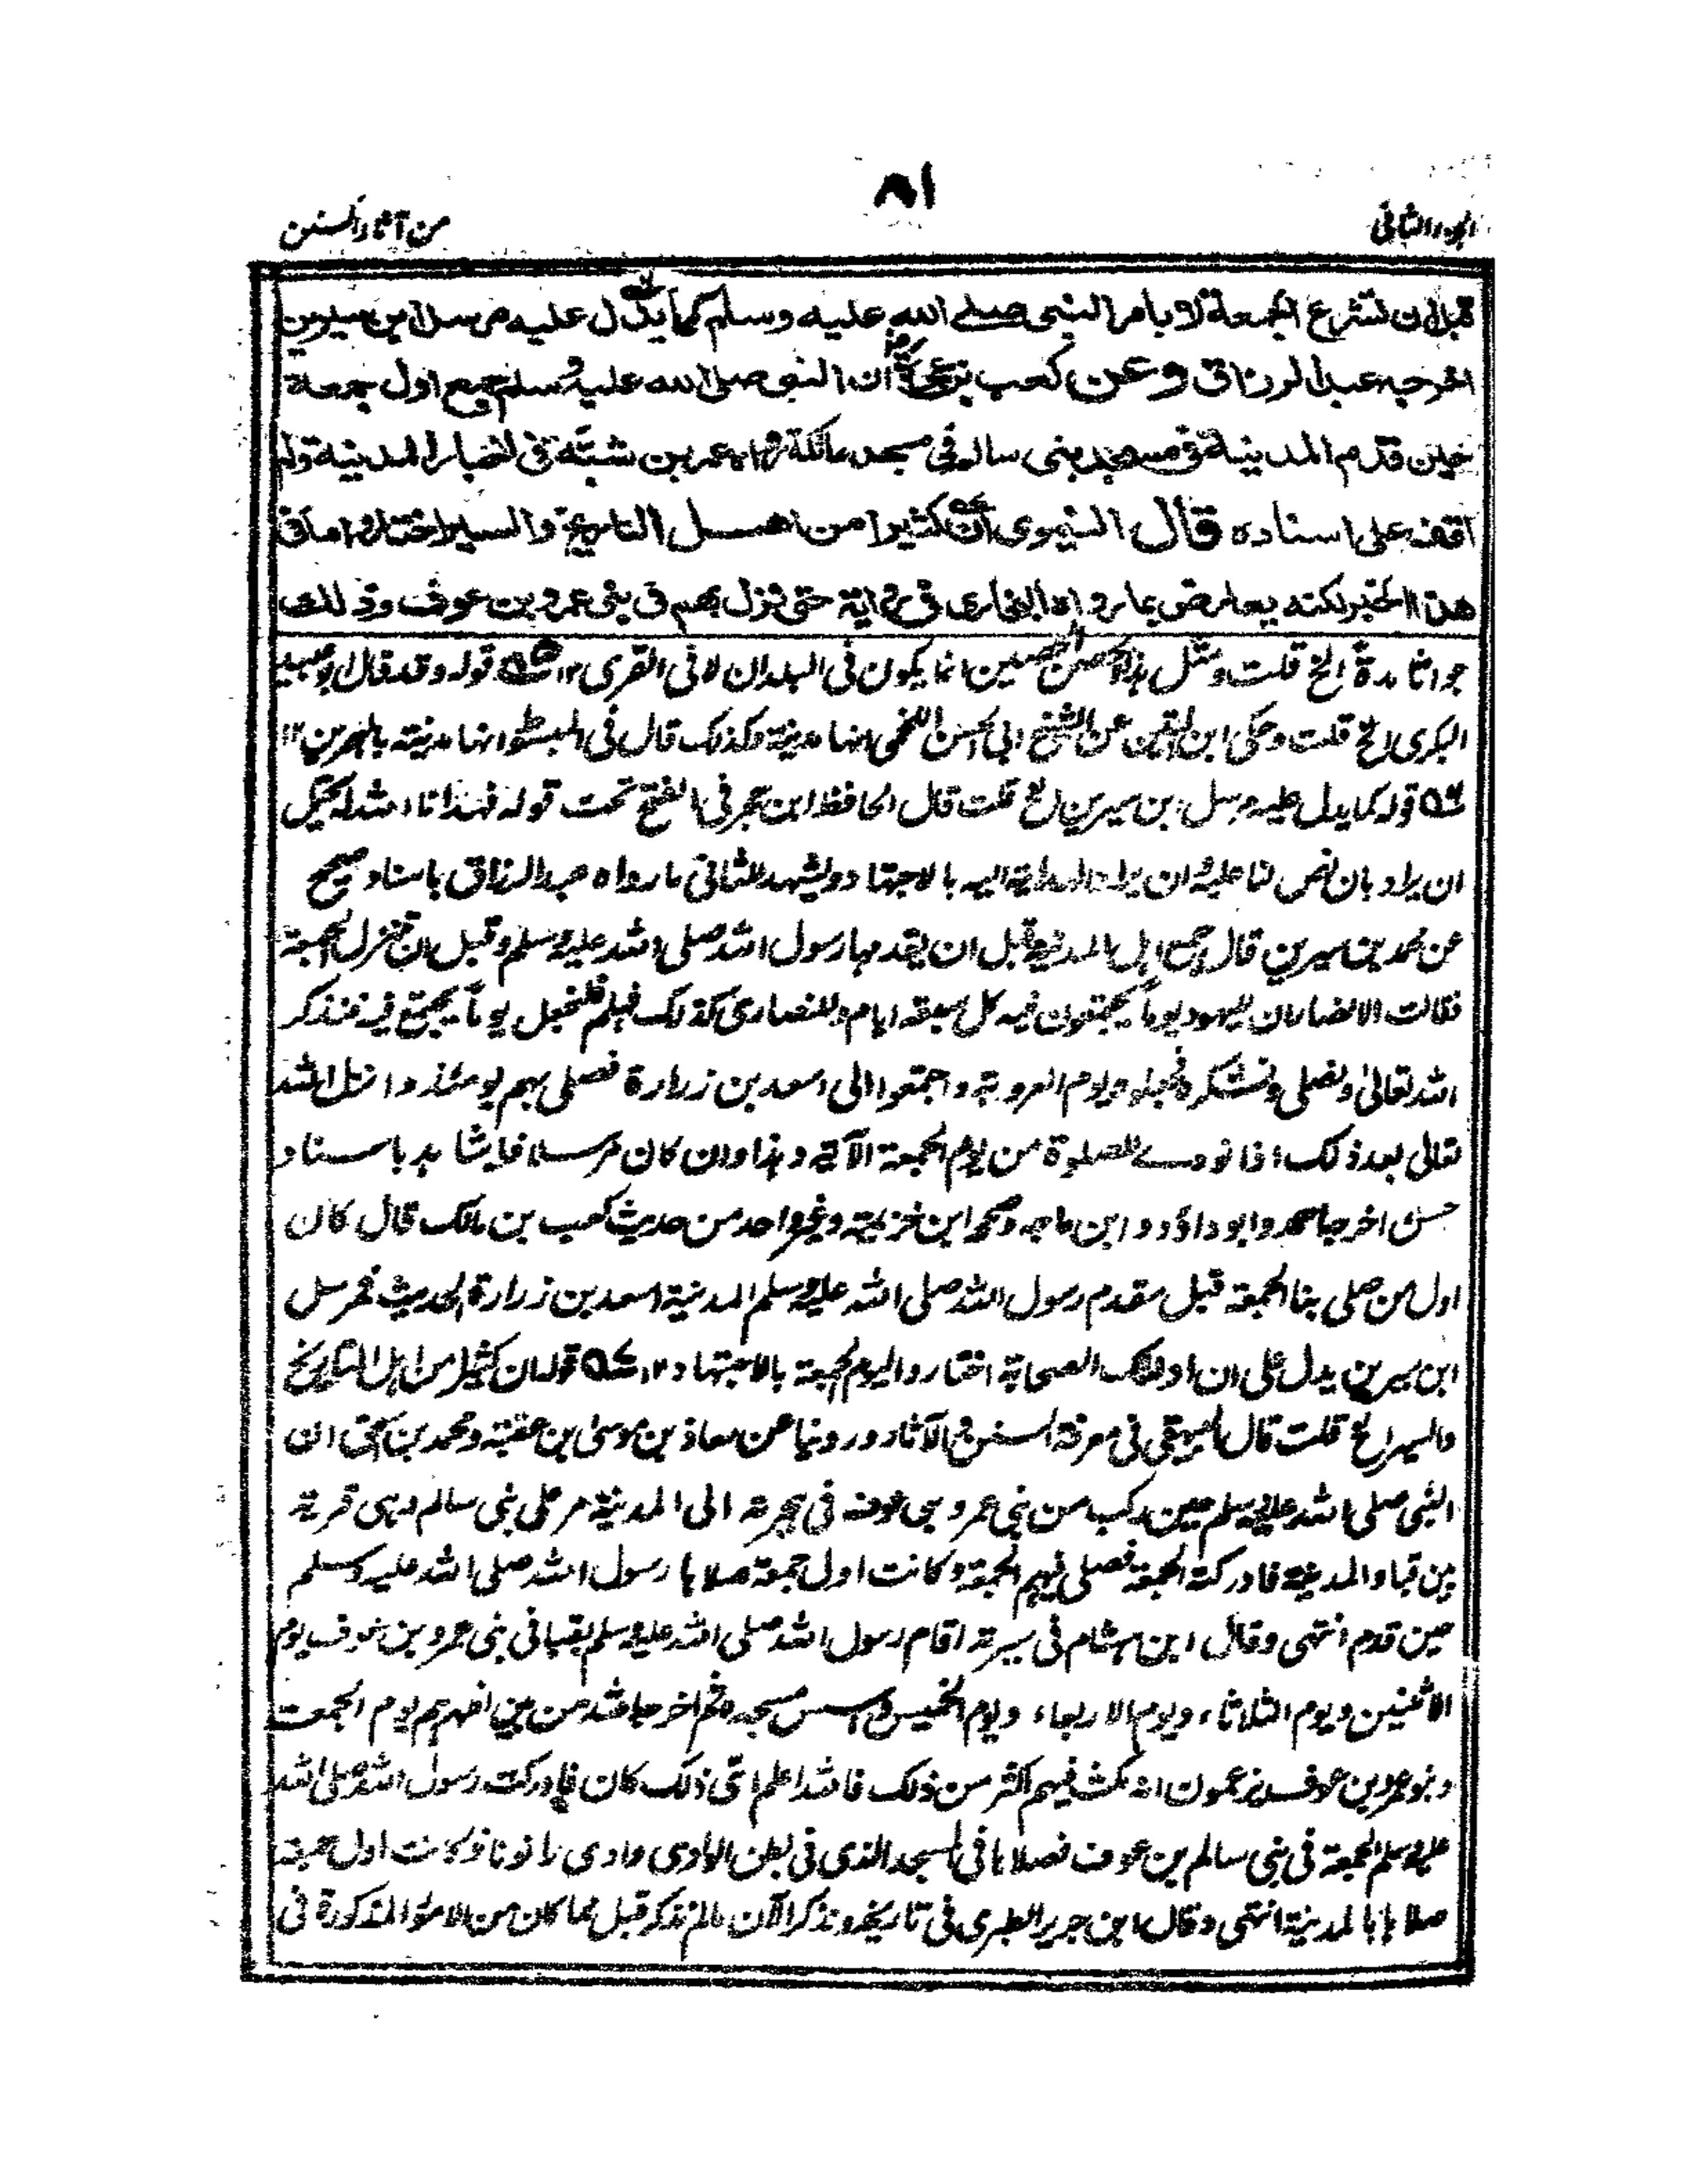 ٨١
الجزء الثانی
من آثار السنن
قبل ان تشرع الجمعة لا بامر النبی صلے الله علیه وسلم کما یدل علیه مرسل ابن سیرین
اخرجه عبد الرزاق وعن کعب بن عجرة رضـ ان النبی صلی الله علیه وسلم جمع اول جمعة
حین قدم المدینة فی مسجد بنی سالم فی مسجد عاتکة رواه عمر بن شبّة فی اخبار المدینة ولم
اقف علی اسناده قال النیموی ان کثیرا من اهل التاریخ والسیر اختاروا ما فی
هذا الخبر لکنه یعارض بما رواه البخاری فی روایة حتی نزل بهم فی بنی عمرو بن عوف وذلك
جواثا مدة الخ قلت ومثل هذا الحصن الحصین انما یکون فی البلدان لا فی القری ١٢ قوله وقد قال ابو عبید
البکری الخ قلت وحکی ابن التین عن الشیخ ابی الحسن اللخمی انها مدینة وکذلك قال فی المبسوط انها مدینة بالبحرین ١٢
قوله کما یدل علیه مرسل ابن سیرین الخ قلت قال الحافظ ابن حجر فی الفتح تحت قوله فهدانا الله له یحتمل
ان یراد بان نص لنا علیه وان یراد الهدایة الیه بالاجتهاد ویشهد للثانی ما رواه عبد الرزاق باسناد صحیح
عن محمد بن سیرین قال جمع اهل المدینة قبل ان یقدمها رسول الله صلی الله علیه وسلم وقبل ان تنزل الجمعة
فقالت الانصار ان للیهود یوماً یجتمعون فیه کل سبعة ایام وللنصاری کذلك فهلم فلنجعل یوماً نجتمع فیه فنذکر
الله تعالیٰ ونصلی ونشکره فجعلوه یوم العروبة واجتمعوا الی اسعد بن زرارة فصلی بهم یومئذ وانزل الله
تعالی بعد ذلك اذا نودی للصلوة من یوم الجمعة الآیة وهذا وان کان مرسلا فله شاهد باسناد
حسن اخرجه احمد وابو داؤد وابن ماجه وصححه ابن خزیمة وغیر واحد من حدیث کعب بن مالك قال کان
اول من صلی بنا الجمعة قبل مقدم رسول الله صلی الله علیه وسلم المدینة اسعد بن زرارة الحدیث فمرسل
ابن سیرین یدل علی ان اولئك الصحابة اختاروا الیوم الجمعة بالاجتهاد ١٢ قوله ان کثیرا من اهل التاریخ
والسیر الخ قلت قال البیهقی فی معرفة السنن والآثار وروینا عن معاذ بن موسیٰ بن عقبة ومحمد بن اسحٰق ان
النبی صلی الله علیه وسلم حین رکب من بنی عمرو بن عوف فی هجرته الی المدینة مر علی بنی سالم وهی قریة
بین قباء والمدینة فادرکته الجمعة فصلی فیهم الجمعة وکانت اول جمعة صلاها رسول الله صلی الله علیه وسلم
حین قدم انتهی وقال ابن هشام فی سیرته اقام رسول الله صلی الله علیه وسلم بقبا فی بنی عمرو بن عوف یوم
الاثنین ویوم الثلاثاء ویوم الاربعاء ویوم الخمیس واسس مسجده ثم اخرجه الله من بین اظهرهم یوم الجمعة
وبنو عمرو بن عوف یزعمون انه مکث فیهم اکثر من ذلك فالله اعلم ای ذلك کان فادرکت رسول الله صلی الله
علیه وسلم الجمعة فی بنی سالم بن عوف فصلاها فی المسجد الذی فی بطن الوادی وادی رانوناء وکانت اول جمعة
صلاها بالمدینة انتهی وقال ابن جریر الطبری فی تاریخه ونذکر الآن مالم نذکر قبل مما کان من الامور المذکورة فی